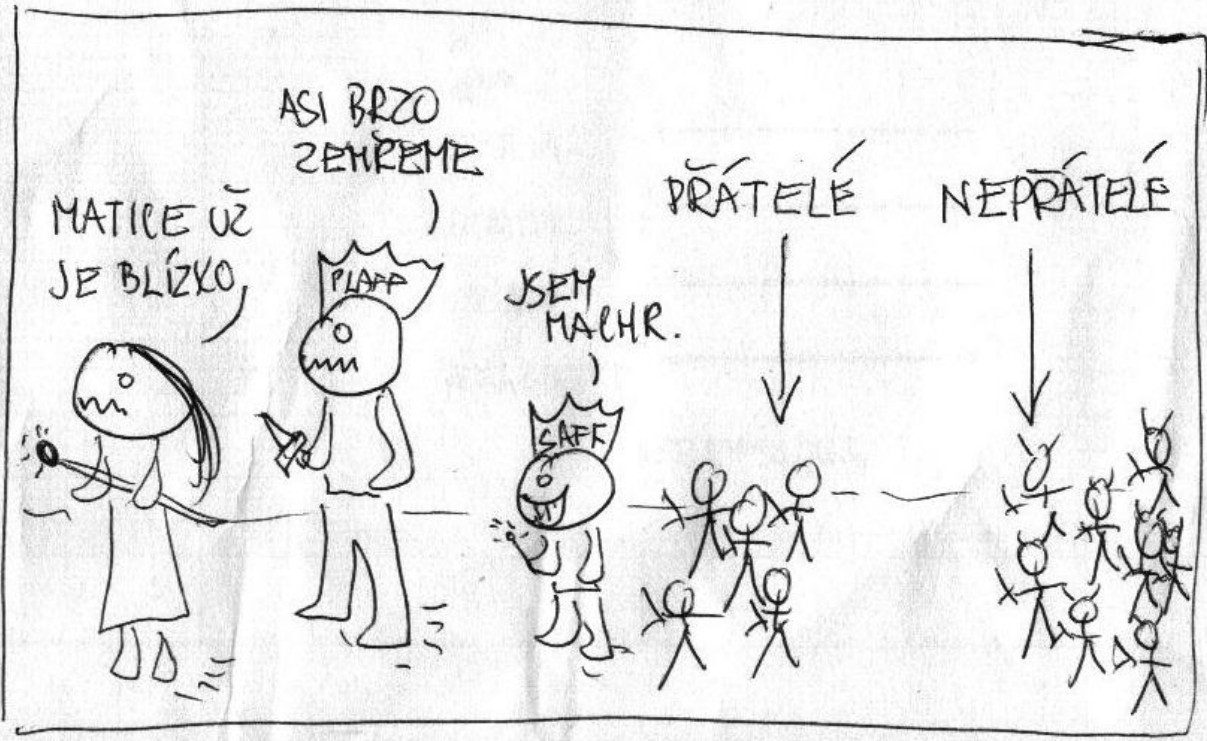 MATICE UŽ
JE BLÍZKO
ASI BRZO
ZEMŘEME
PLAFF
JSEM
MACHR.
SAFF
PŘÁTELÉ
NEPŘÁTELÉ